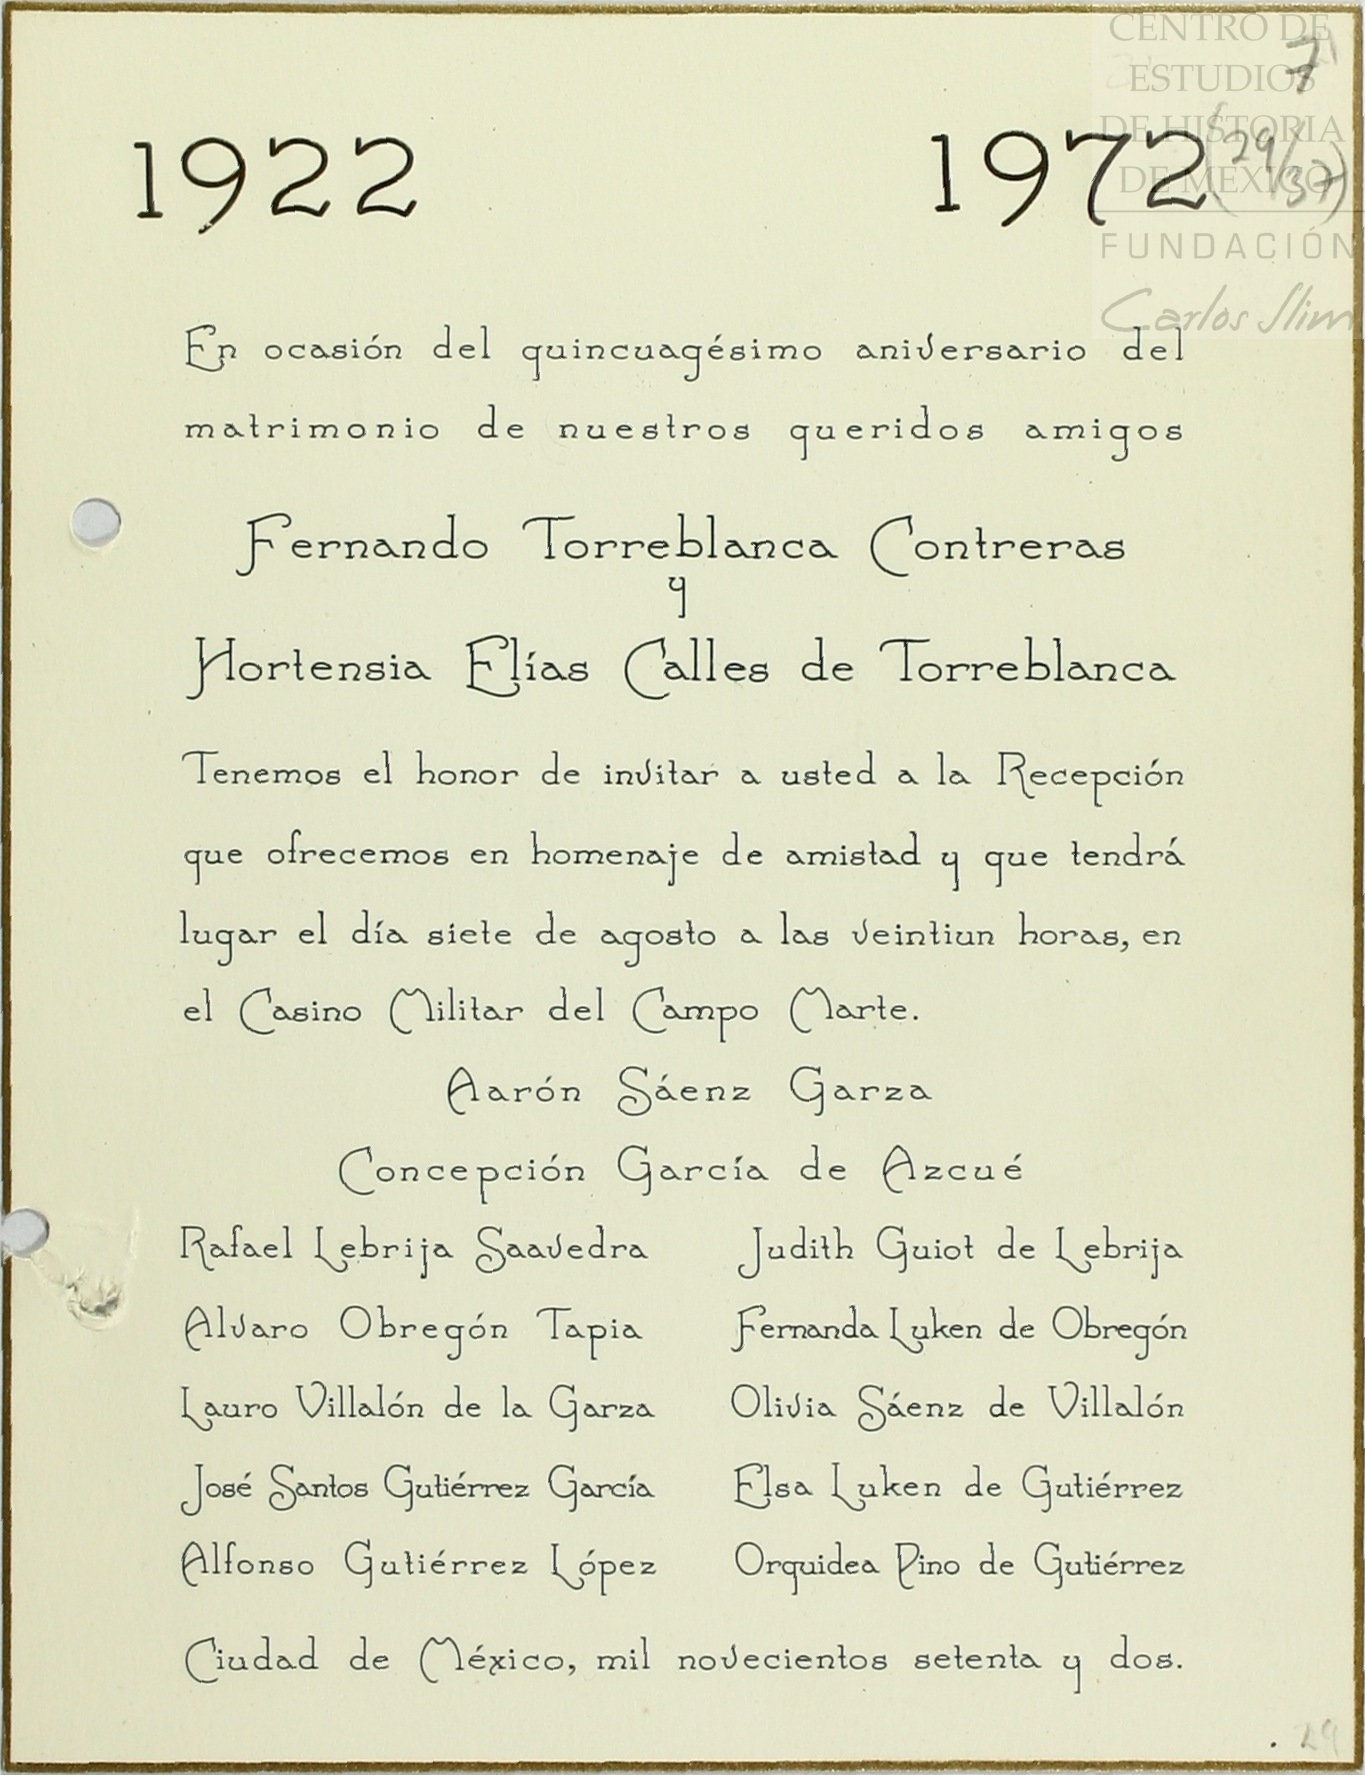 CENTRO DE
ESTUDIOS
DE HISTORIA
DE MEXICO
FUNDACIÓN
Carlos Slim
7
(29/37)
1922 1972
En ocasión del quincuagésimo aniversario del
matrimonio de nuestros queridos amigos
Fernando Torreblanca Contreras
y
Hortensia Elías Calles de Torreblanca
Tenemos el honor de invitar a usted a la Recepción
que ofrecemos en homenaje de amistad y que tendrá
lugar el día siete de agosto a las veintiun horas, en
el Casino Militar del Campo Marte.
Aarón Sáenz Garza
Concepción García de Azcué
Rafael Lebrija Saavedra Judith Guiot de Lebrija
Alvaro Obregón Tapia Fernanda Luken de Obregón
Lauro Villalón de la Garza Olivia Sáenz de Villalón
José Santos Gutiérrez García Elsa Luken de Gutiérrez
Alfonso Gutiérrez López Orquidea Pino de Gutiérrez
Ciudad de México, mil novecientos setenta y dos.
29